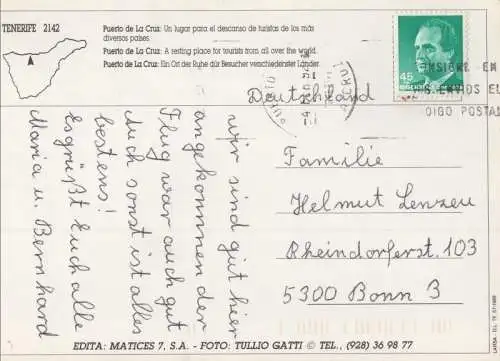 TENERIFE 2142
Puerto de La Cruz: Un lugar para el descanso de turistas de los más
diversos países.
Puerto de La Cruz: A resting place for tourists from all over the world.
Puerto de La Cruz: Ein Ort der Ruhe dür Besucher verschiedenster Länder.
45
Deutschland
wir sind gut hier
angekommen der
Flug war auch gut
Auch sonst ist alles
bestens!
Es grüßt Euch alle
Maria u. Bernhard
Familie
Helmut Lenzen
Rheindorferst. 103
5300 Bonn 3
EDITA: MATICES 7, S.A. - FOTO: TULLIO GATTI © TEL., (928) 36 98 77